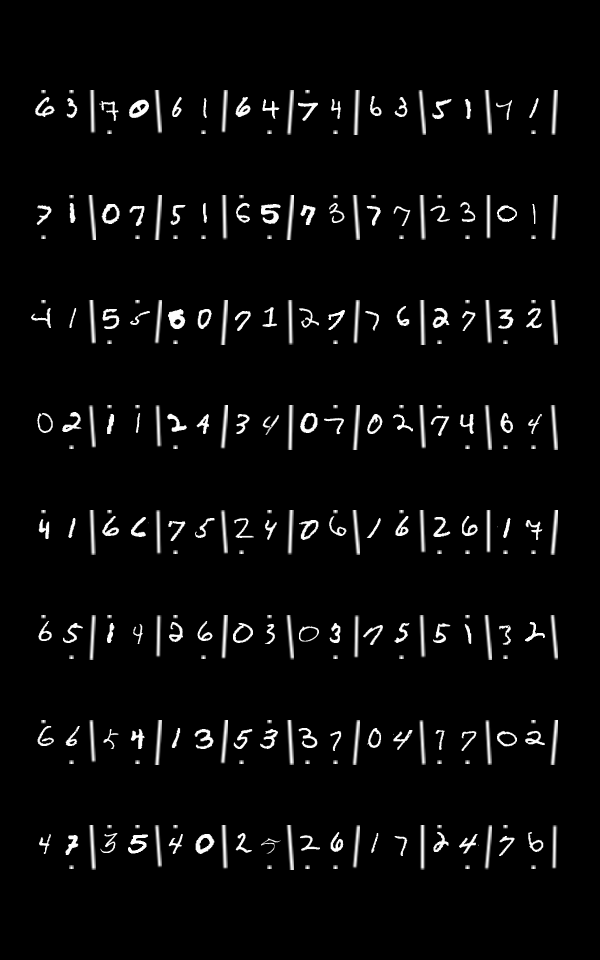 6 3 | 7 0 | 6 1 | 6 4 | 7 4 | 6 3 | 5 1 | 7 1 |
7 1 | 0 7 | 5 1 | 6 5 | 7 3 | 7 7 | 2 3 | 0 1 |
4 1 | 5 5 | 6 0 | 7 1 | 2 7 | 7 6 | 2 7 | 3 2 |
0 2 | 1 1 | 2 4 | 3 4 | 0 7 | 0 2 | 7 4 | 6 4 |
4 1 | 6 6 | 7 5 | 2 4 | 0 6 | 1 6 | 2 6 | 1 7 |
6 5 | 1 4 | 2 6 | 0 3 | 0 3 | 7 5 | 5 1 | 3 2 |
6 6 | 5 4 | 1 3 | 5 3 | 3 7 | 0 4 | 7 7 | 0 2 |
4 7 | 3 5 | 4 0 | 2 5 | 2 6 | 1 7 | 2 4 | 7 6 |